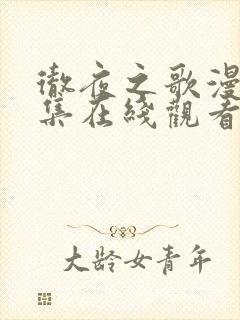 徹夜之歌漫
集在綫觀看
大龄女青年